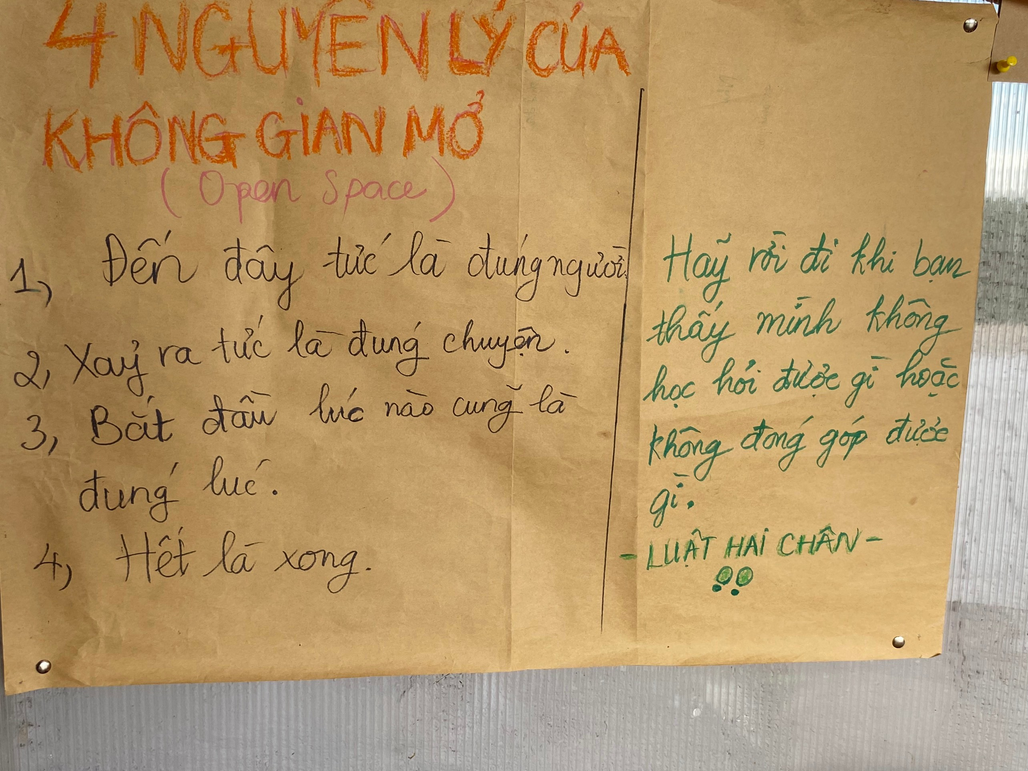 4 NGUYÊN LÝ CỦA
KHÔNG GIAN MỞ
(Open Space)
1, Đến đây tức là đúng người.
2, Xảy ra tức là đúng chuyện.
3, Bắt đầu lúc nào cũng là
đúng lúc.
4, Hết là xong.
Hãy rời đi khi bạn
thấy mình không
học hỏi được gì hoặc
không đóng góp được
gì.
- LUẬT HAI CHÂN -